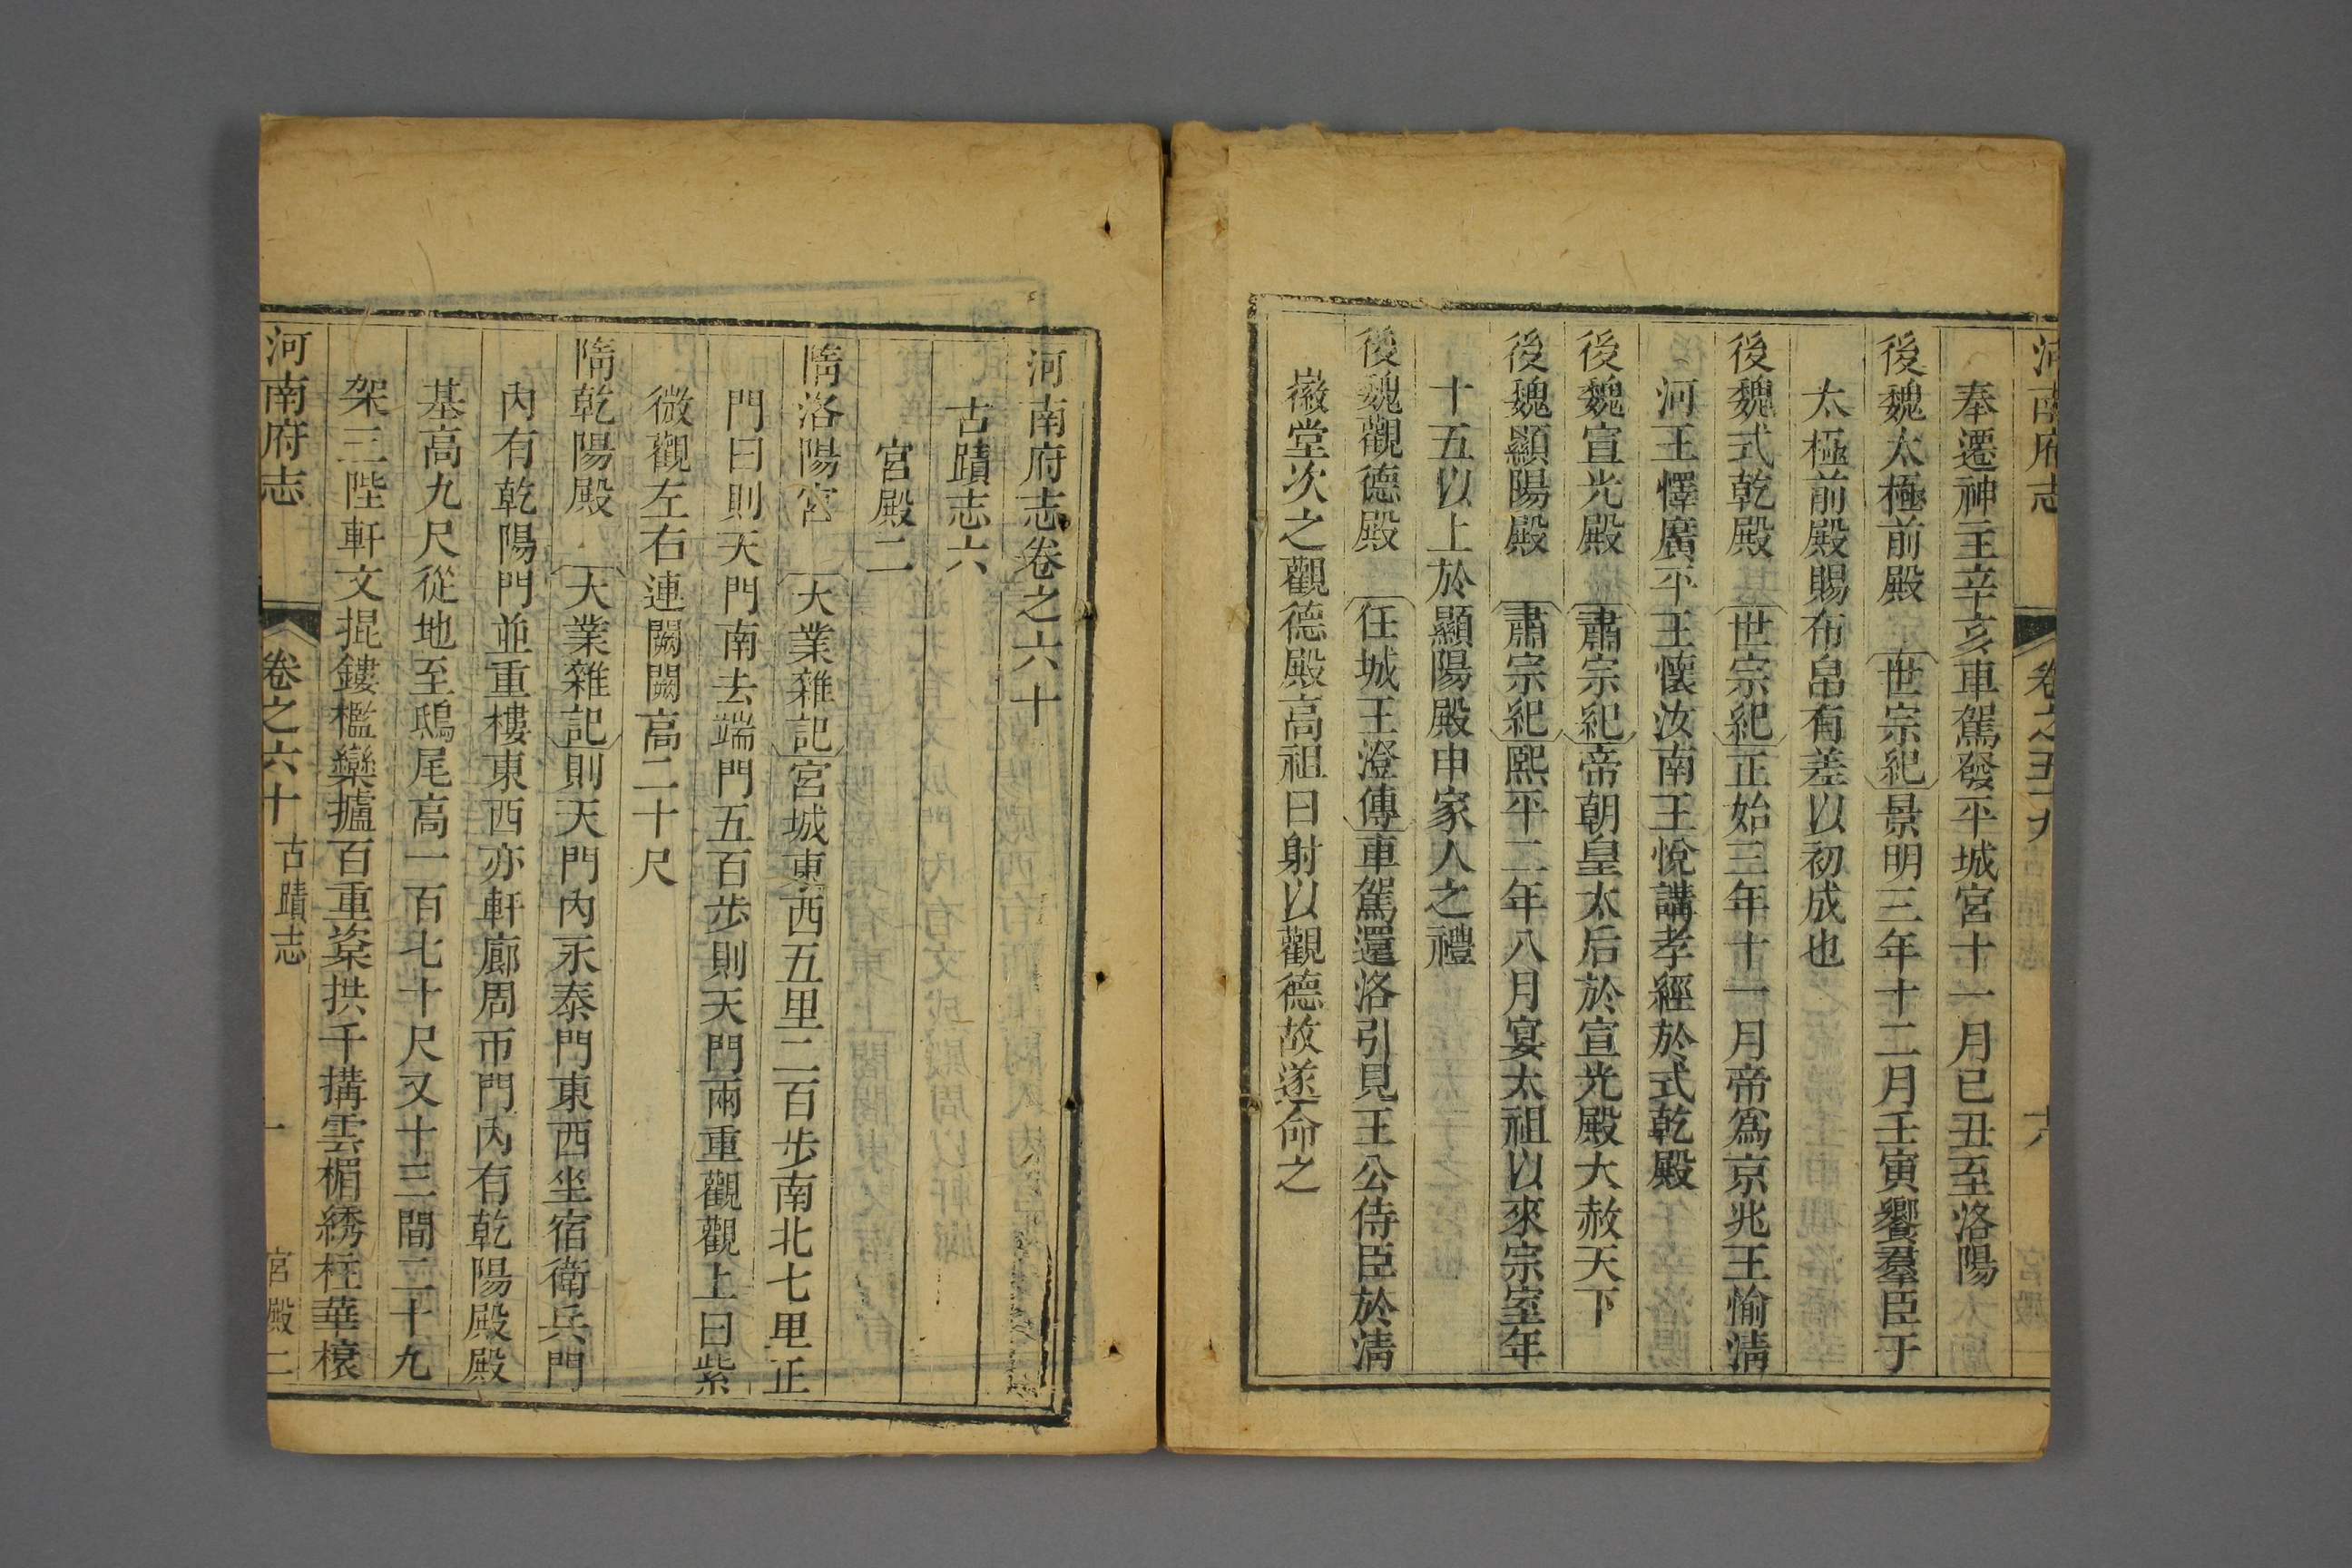 河南府志
卷之五十九
十八
奉遷神主辛亥車駕發平城宮十一月已丑至洛陽
後魏太極前殿 世宗紀景明三年十二月壬寅饗羣臣于
太極前殿賜布帛有差以初成也
後魏式乾殿 世宗紀正始三年十一月帝爲京兆王愉淸
河王懌廣平王懷汝南王悅講孝經於式乾殿
後魏宣光殿 肅宗紀帝朝皇太后於宣光殿大赦天下
後魏顯陽殿 肅宗紀熙平二年八月宴太祖以來宗室年
十五以上於顯陽殿申家人之禮
後魏觀德殿 任城王澄傳車駕還洛引見王公侍臣於淸
徽堂次之觀德殿高祖曰射以觀德故遂命之
河南府志卷之六十
古蹟志六
宮殿二
隋洛陽宮 大業雜記宮城東西五里二百步南北七里正
門曰則天門南去端門五百步則天門兩重觀觀上曰紫
微觀左右連闕闕高二十尺
隋乾陽殿 大業雜記則天門內永泰門東西坐宿衛兵門
內有乾陽門並重樓東西亦軒廊周帀門內有乾陽殿殿
基高九尺從地至鴟尾高一百七十尺又十三間二十九
架三陛軒文掍鏤檻欒攎百重楶拱千搆雲楣綉柱華榱
河南府志
卷之六十 古蹟志
一
宮殿二